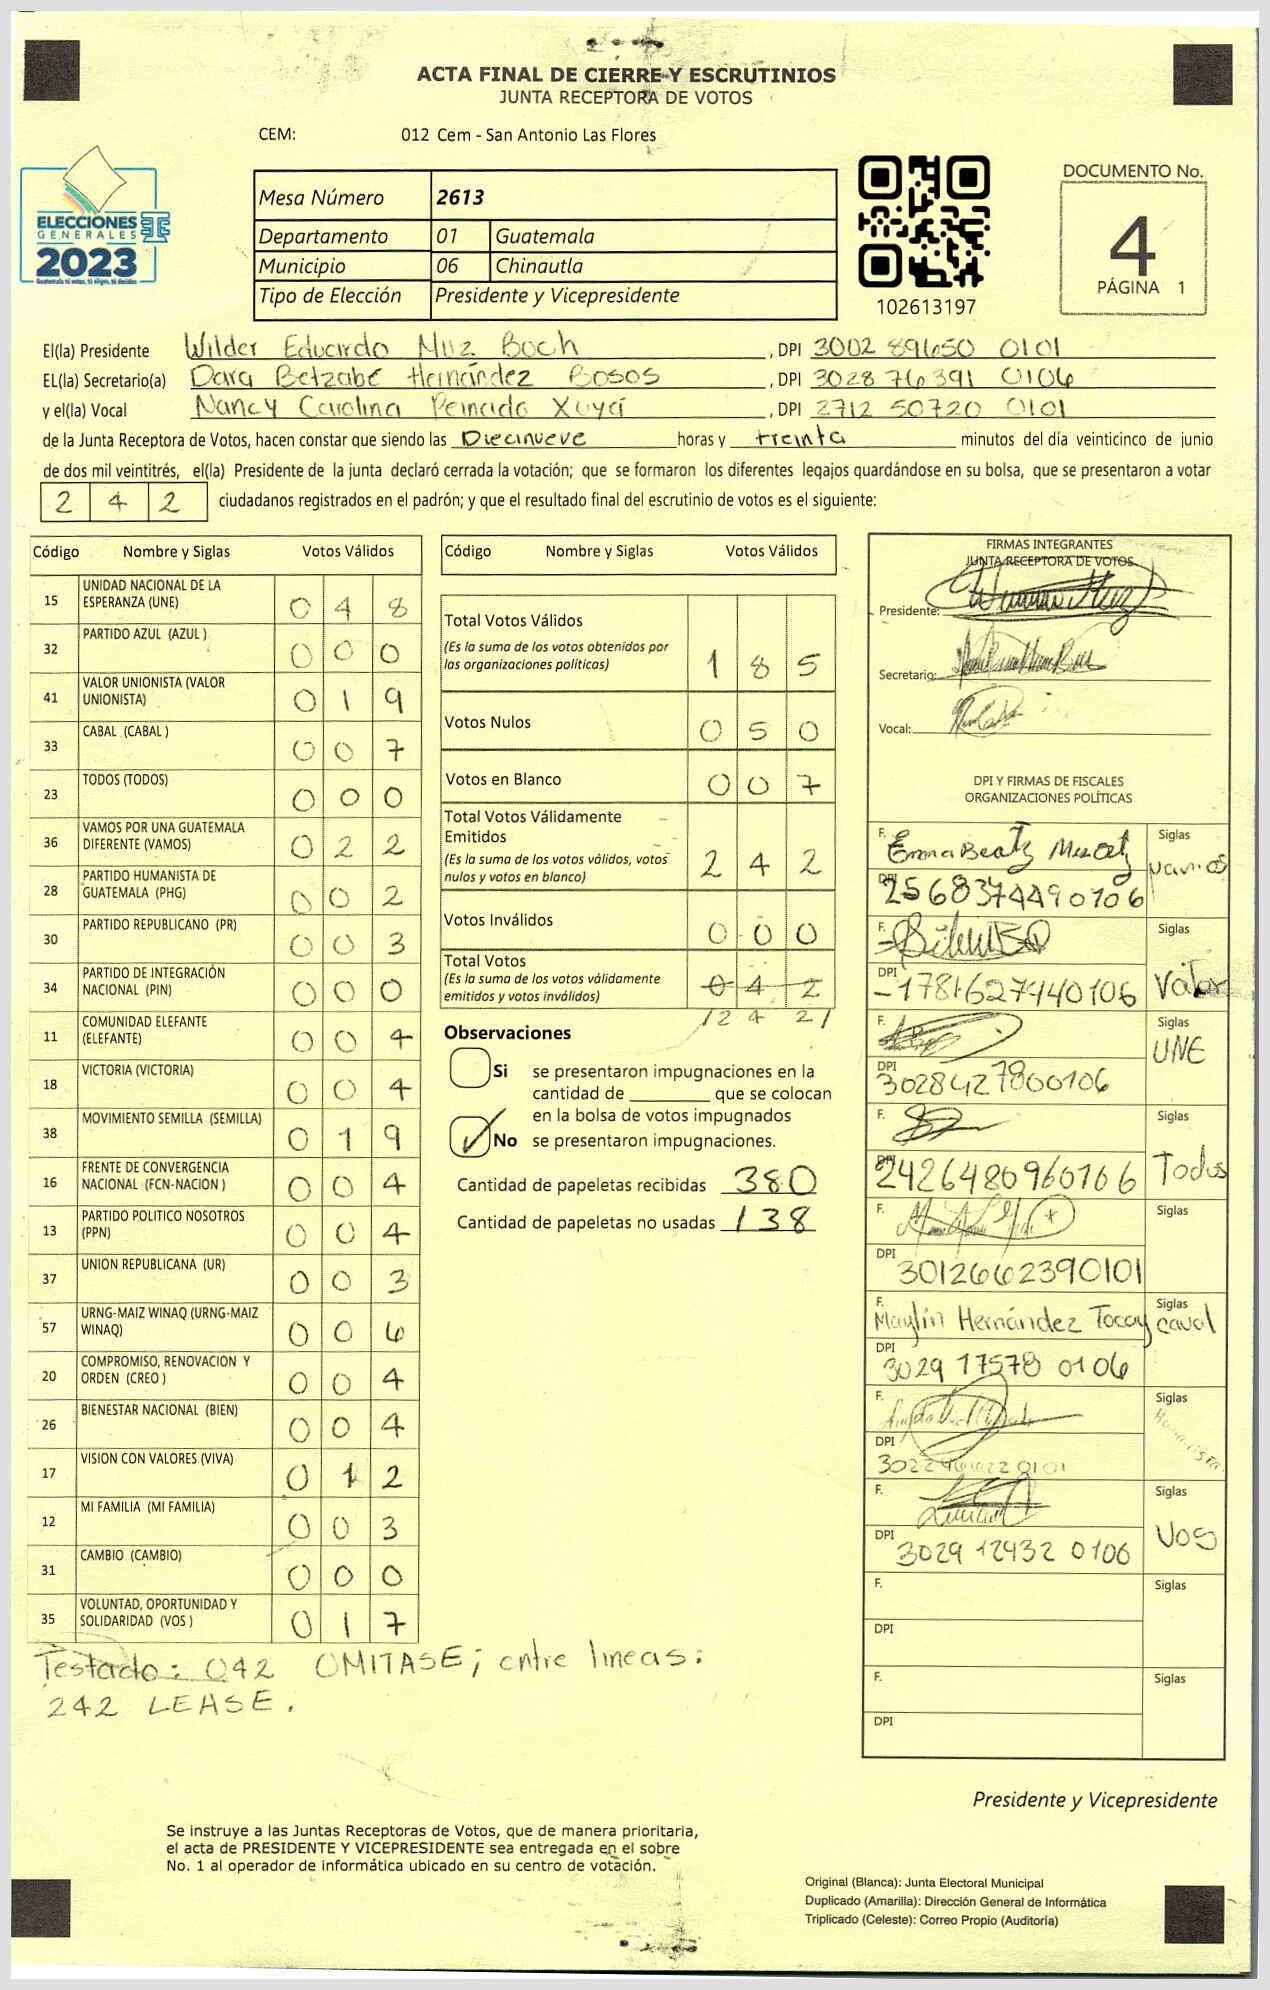 ACTA FINAL DE CIERRE Y ESCRUTINIOS
JUNTA RECEPTORA DE VOTOS
CEM: 012 Cem - San Antonio Las Flores
ELECCIONES
GENERALES
2023
Mesa Número 2613
Departamento 01 Guatemala
Municipio 06 Chinautla
Tipo de Elección Presidente y Vicepresidente
102613197
DOCUMENTO No.
4
PÁGINA 1
El(la) Presidente Wilder Eduardo Muz Boch , DPI 3002 89650 0101
EL(la) Secretario(a) Dara Betzabé Hernández Bosos , DPI 3028 76391 0106
y el(la) Vocal Nancy Carolina Peinado Xuyá , DPI 2712 50720 0101
de la Junta Receptora de Votos, hacen constar que siendo las Diecinueve horas y treinta minutos del día veinticinco de junio
de dos mil veintitrés, el(la) Presidente de la junta declaró cerrada la votación; que se formaron los diferentes legajos guardándose en su bolsa, que se presentaron a votar
2 4 2 ciudadanos registrados en el padrón; y que el resultado final del escrutinio de votos es el siguiente:
Código Nombre y Siglas Votos Válidos
15 UNIDAD NACIONAL DE LA ESPERANZA (UNE) 0 4 8
32 PARTIDO AZUL (AZUL ) 0 0 0
41 VALOR UNIONISTA (VALOR UNIONISTA) 0 1 9
33 CABAL (CABAL ) 0 0 7
23 TODOS (TODOS) 0 0 0
36 VAMOS POR UNA GUATEMALA DIFERENTE (VAMOS) 0 2 2
28 PARTIDO HUMANISTA DE GUATEMALA (PHG) 0 0 2
30 PARTIDO REPUBLICANO (PR) 0 0 3
34 PARTIDO DE INTEGRACIÓN NACIONAL (PIN) 0 0 0
11 COMUNIDAD ELEFANTE (ELEFANTE) 0 0 4
18 VICTORIA (VICTORIA) 0 0 4
38 MOVIMIENTO SEMILLA (SEMILLA) 0 1 9
16 FRENTE DE CONVERGENCIA NACIONAL (FCN-NACION ) 0 0 4
13 PARTIDO POLITICO NOSOTROS (PPN) 0 0 4
37 UNION REPUBLICANA (UR) 0 0 3
57 URNG-MAIZ WINAQ (URNG-MAIZ WINAQ) 0 0 6
20 COMPROMISO, RENOVACION Y ORDEN (CREO ) 0 0 4
26 BIENESTAR NACIONAL (BIEN) 0 0 4
17 VISION CON VALORES (VIVA) 0 1 2
12 MI FAMILIA (MI FAMILIA) 0 0 3
31 CAMBIO (CAMBIO) 0 0 0
35 VOLUNTAD, OPORTUNIDAD Y SOLIDARIDAD (VOS ) 0 1 7
Testado: 042 OMITASE; entre lineas:
242 LEASE.
Código Nombre y Siglas Votos Válidos
Total Votos Válidos
(Es la suma de los votos obtenidos por
las organizaciones políticas) 1 8 5
Votos Nulos 0 5 0
Votos en Blanco 0 0 7
Total Votos Válidamente
Emitidos
(Es la suma de los votos válidos, votos
nulos y votos en blanco) 2 4 2
Votos Inválidos 0 0 0
Total Votos
(Es la suma de los votos válidamente
emitidos y votos inválidos) 0 4 2
/2 4 2/
Observaciones
Si se presentaron impugnaciones en la
cantidad de ________ que se colocan
en la bolsa de votos impugnados
No se presentaron impugnaciones.
Cantidad de papeletas recibidas 380
Cantidad de papeletas no usadas 138
FIRMAS INTEGRANTES
JUNTA RECEPTORA DE VOTOS
Presidente:
Secretario:
Vocal:
DPI Y FIRMAS DE FISCALES
ORGANIZACIONES POLÍTICAS
F. Siglas
DPI 2568374490106 Vamos
F. Siglas
DPI 1781627440106 Valor
F. Siglas
DPI 3028427800106 UNE
F. Siglas
DPI 2426480960106 Todos
F. Siglas
DPI 3012662390101
F. Maylin Hernández Tocay Siglas Caval
DPI 3029 17578 0106
F. Siglas
DPI
F. Siglas
DPI 3029 12932 0106 VOS
F. Siglas
DPI
F. Siglas
DPI
Presidente y Vicepresidente
Se instruye a las Juntas Receptoras de Votos, que de manera prioritaria,
el acta de PRESIDENTE Y VICEPRESIDENTE sea entregada en el sobre
No. 1 al operador de informática ubicado en su centro de votación.
Original (Blanca): Junta Electoral Municipal
Duplicado (Amarilla): Dirección General de Informática
Triplicado (Celeste): Correo Propio (Auditoría)